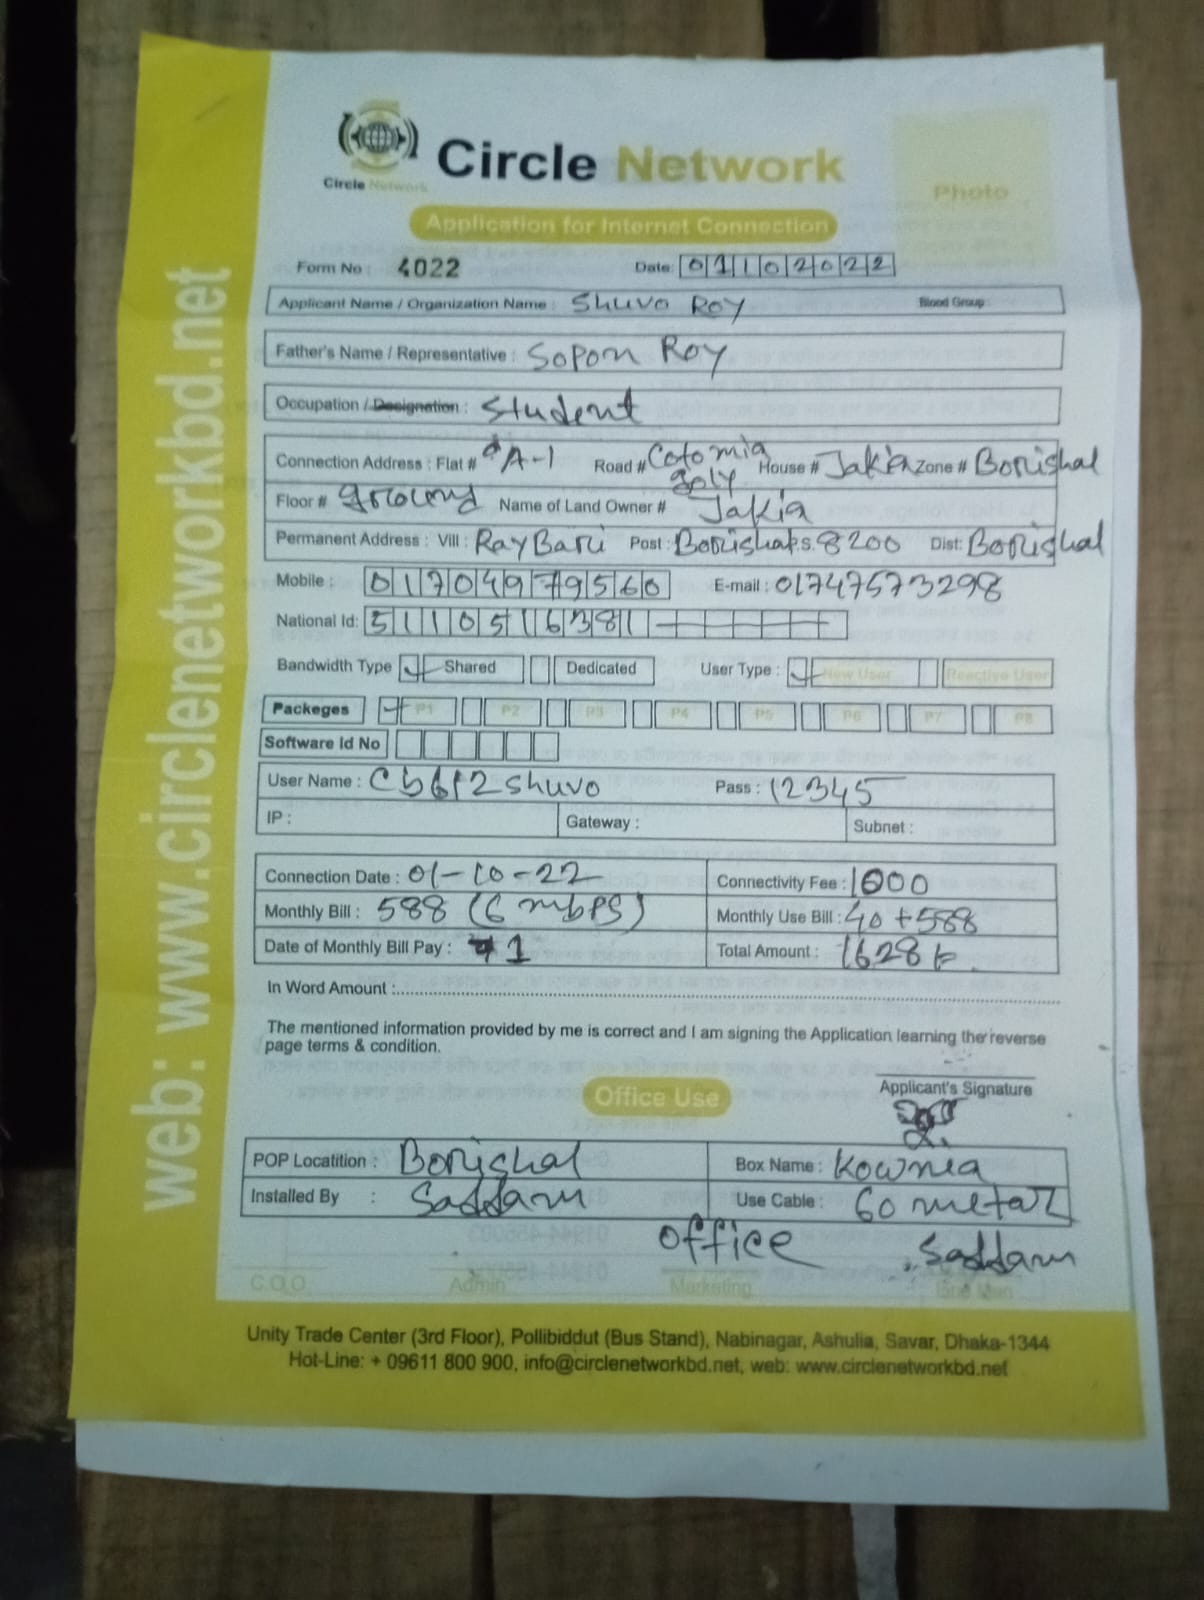 Circle Network
Circle Network
Photo
Application for Internet Connection
Form No : 4022 Date: 01102022
Applicant Name / Organization Name : Shuvo Roy Blood Group :
Father's Name / Representative : Sopon Roy
Occupation / Designation : Student
Connection Address : Flat # A-1 Road # Cotomia goly House # Jakia Zone # Borishal
Floor # Ground Name of Land Owner # Jakia
Permanent Address : Vill : Ray Bari Post : Borishal P.S. 8200 Dist: Borishal
Mobile : 01704979560 E-mail : 01747573298
National Id: 5110516381
Bandwidth Type Shared Dedicated User Type : New User Reactive User
Packeges P1 P2 P3 P4 P5 P6 P7 P8
Software Id No
User Name : Cb612shuvo Pass : 12345
IP : Gateway : Subnet :
Connection Date : 01-10-22 Connectivity Fee : 1000
Monthly Bill : 588 (6 mbps) Monthly Use Bill : 40+588
Date of Monthly Bill Pay : 1 Total Amount : 1628
In Word Amount :
The mentioned information provided by me is correct and I am signing the Application learning the reverse
page terms & condition.
Applicant's Signature
Office Use
POP Locatition : Borishal Box Name : Kownia
Installed By : Saddam Use Cable : 60 metar
office Saddam
C.O.O. Admin Marketing Line Man
Unity Trade Center (3rd Floor), Pollibiddut (Bus Stand), Nabinagar, Ashulia, Savar, Dhaka-1344
Hot-Line: + 09611 800 900, info@circlenetworkbd.net, web: www.circlenetworkbd.net
web: www.circlenetworkbd.net